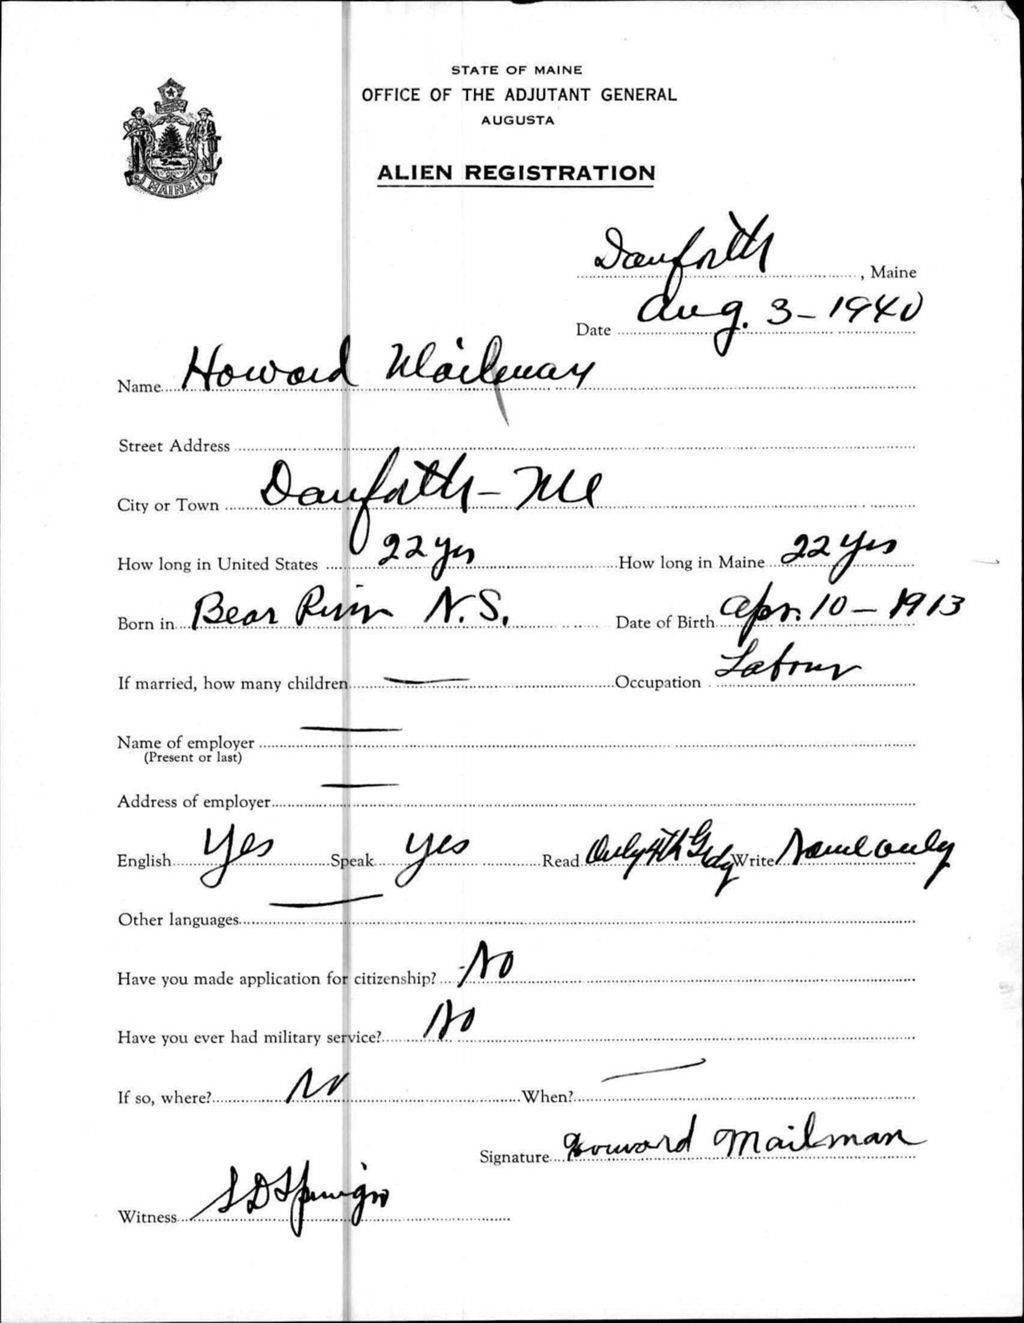 STATE OF MAINE
OFFICE OF THE ADJUTANT GENERAL
AUGUSTA
ALIEN REGISTRATION
MAINE
Danforth, Maine
Date Aug. 3 - 1940
Name Howard Mailman
Street Address
City or Town Danforth - Me
How long in United States 22 yrs How long in Maine 22 yrs
Born in Bear River N.S. Date of Birth Apr. 10 - 1913
If married, how many children — Occupation Labour
Name of employer —
(Present or last)
Address of employer —
English Yes Speak yes Read Only 4th Write Name only
Other languages —
Have you made application for citizenship? No
Have you ever had military service? No
If so, where? No When? —
Signature Howard Mailman
Witness S D